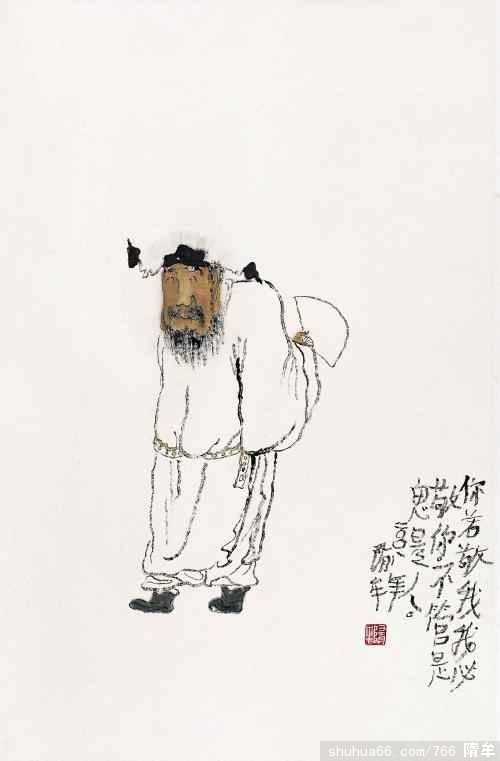 你若敬我我必
敬你不管是
鬼是人。
隋牟
shuhua66.com/766 隋牟